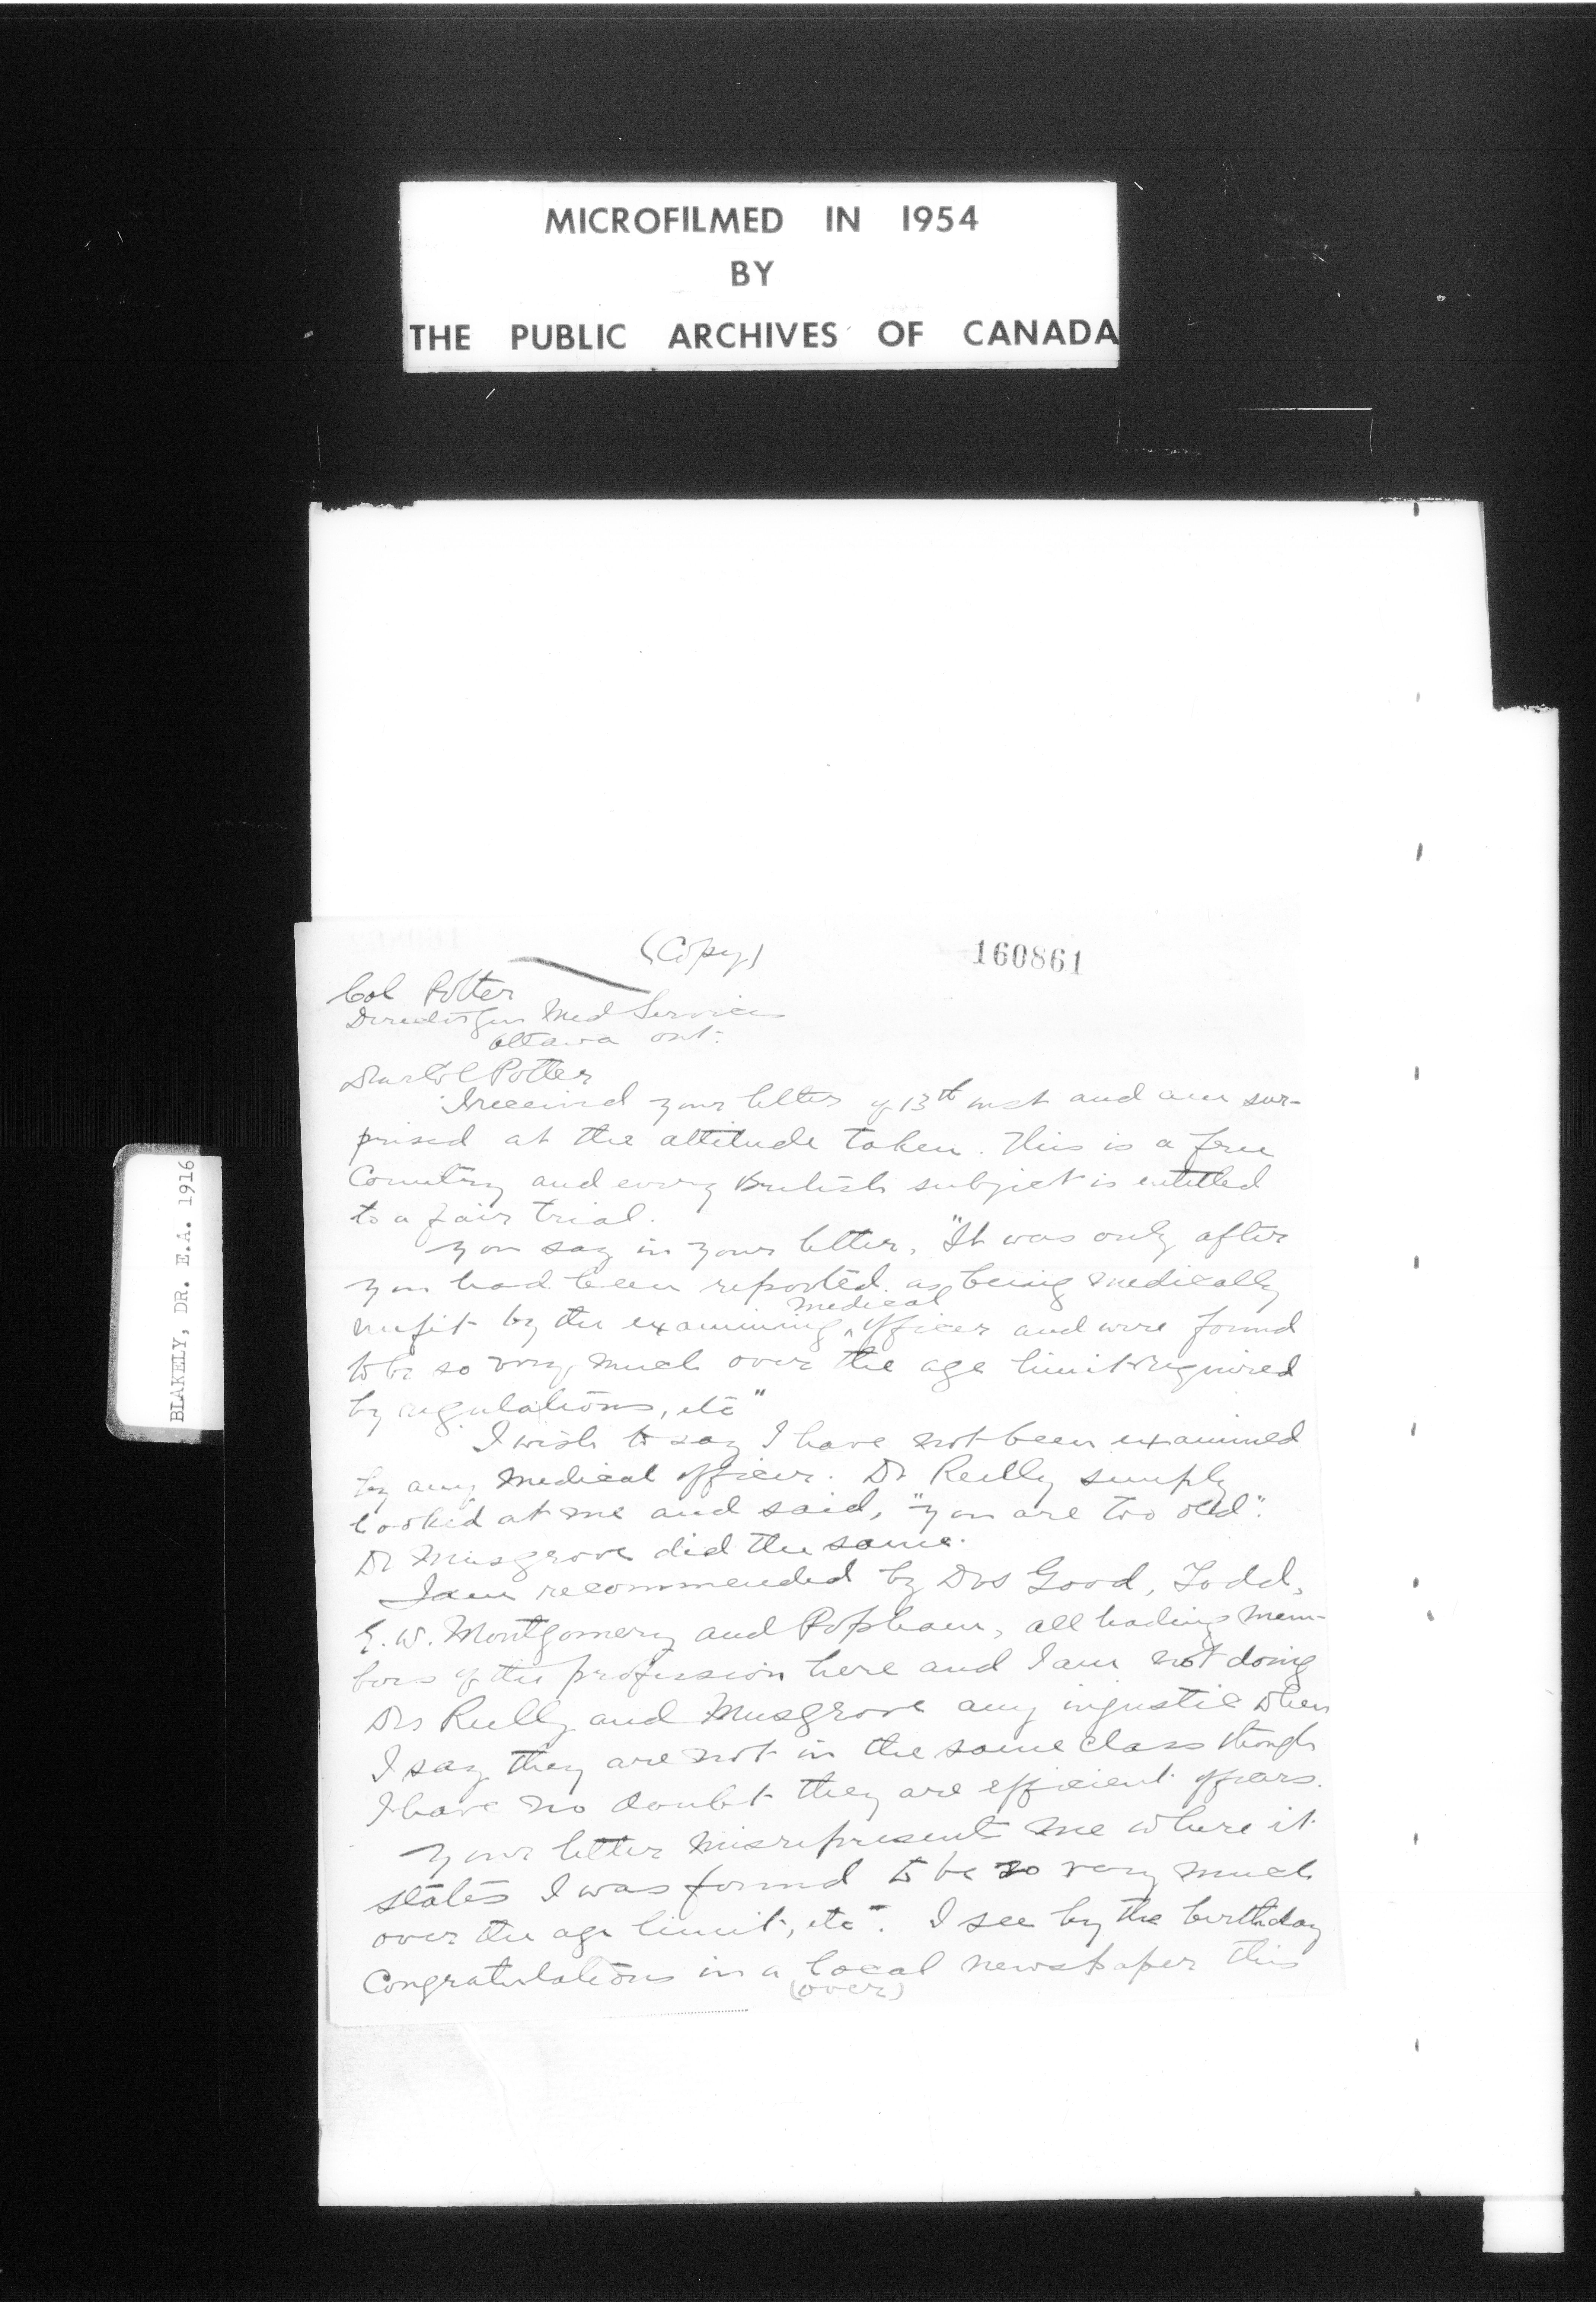 MICROFILMED IN 1954
BY
THE PUBLIC ARCHIVES OF CANADA
BLAKELY, DR. E.A. 1916
(Copy)
160861
Col Potter
Director Gen Med Services
Ottawa Ont.
Dear Col Potter
I received your letter of 13th inst and am sur-
prised at the attitude taken. This is a free
Country and every British subject is entitled
to a fair trial.
You say in your letter, "It was only after
you had been reported as being medically
unfit by the examining medical officer and were found
to be so very much over the age limit required
by regulations, etc"
I wish to say I have not been examined
by any medical officer. Dr Reilly simply
looked at me and said, "you are too old".
Dr Musgrove did the same.
I am recommended by Drs Good, Todd,
E. W. Montgomery and Popham, all leading mem-
bers of the profession here and I am not doing
Drs Reilly and Musgrove any injustice when
I say they are not in the same class though
I have no doubt they are efficient officers.
Your letter misrepresents me where it
states I was found to be so very much
over the age limit, etc". I see by the birthday
Congratulations in a local newspaper this
(over)